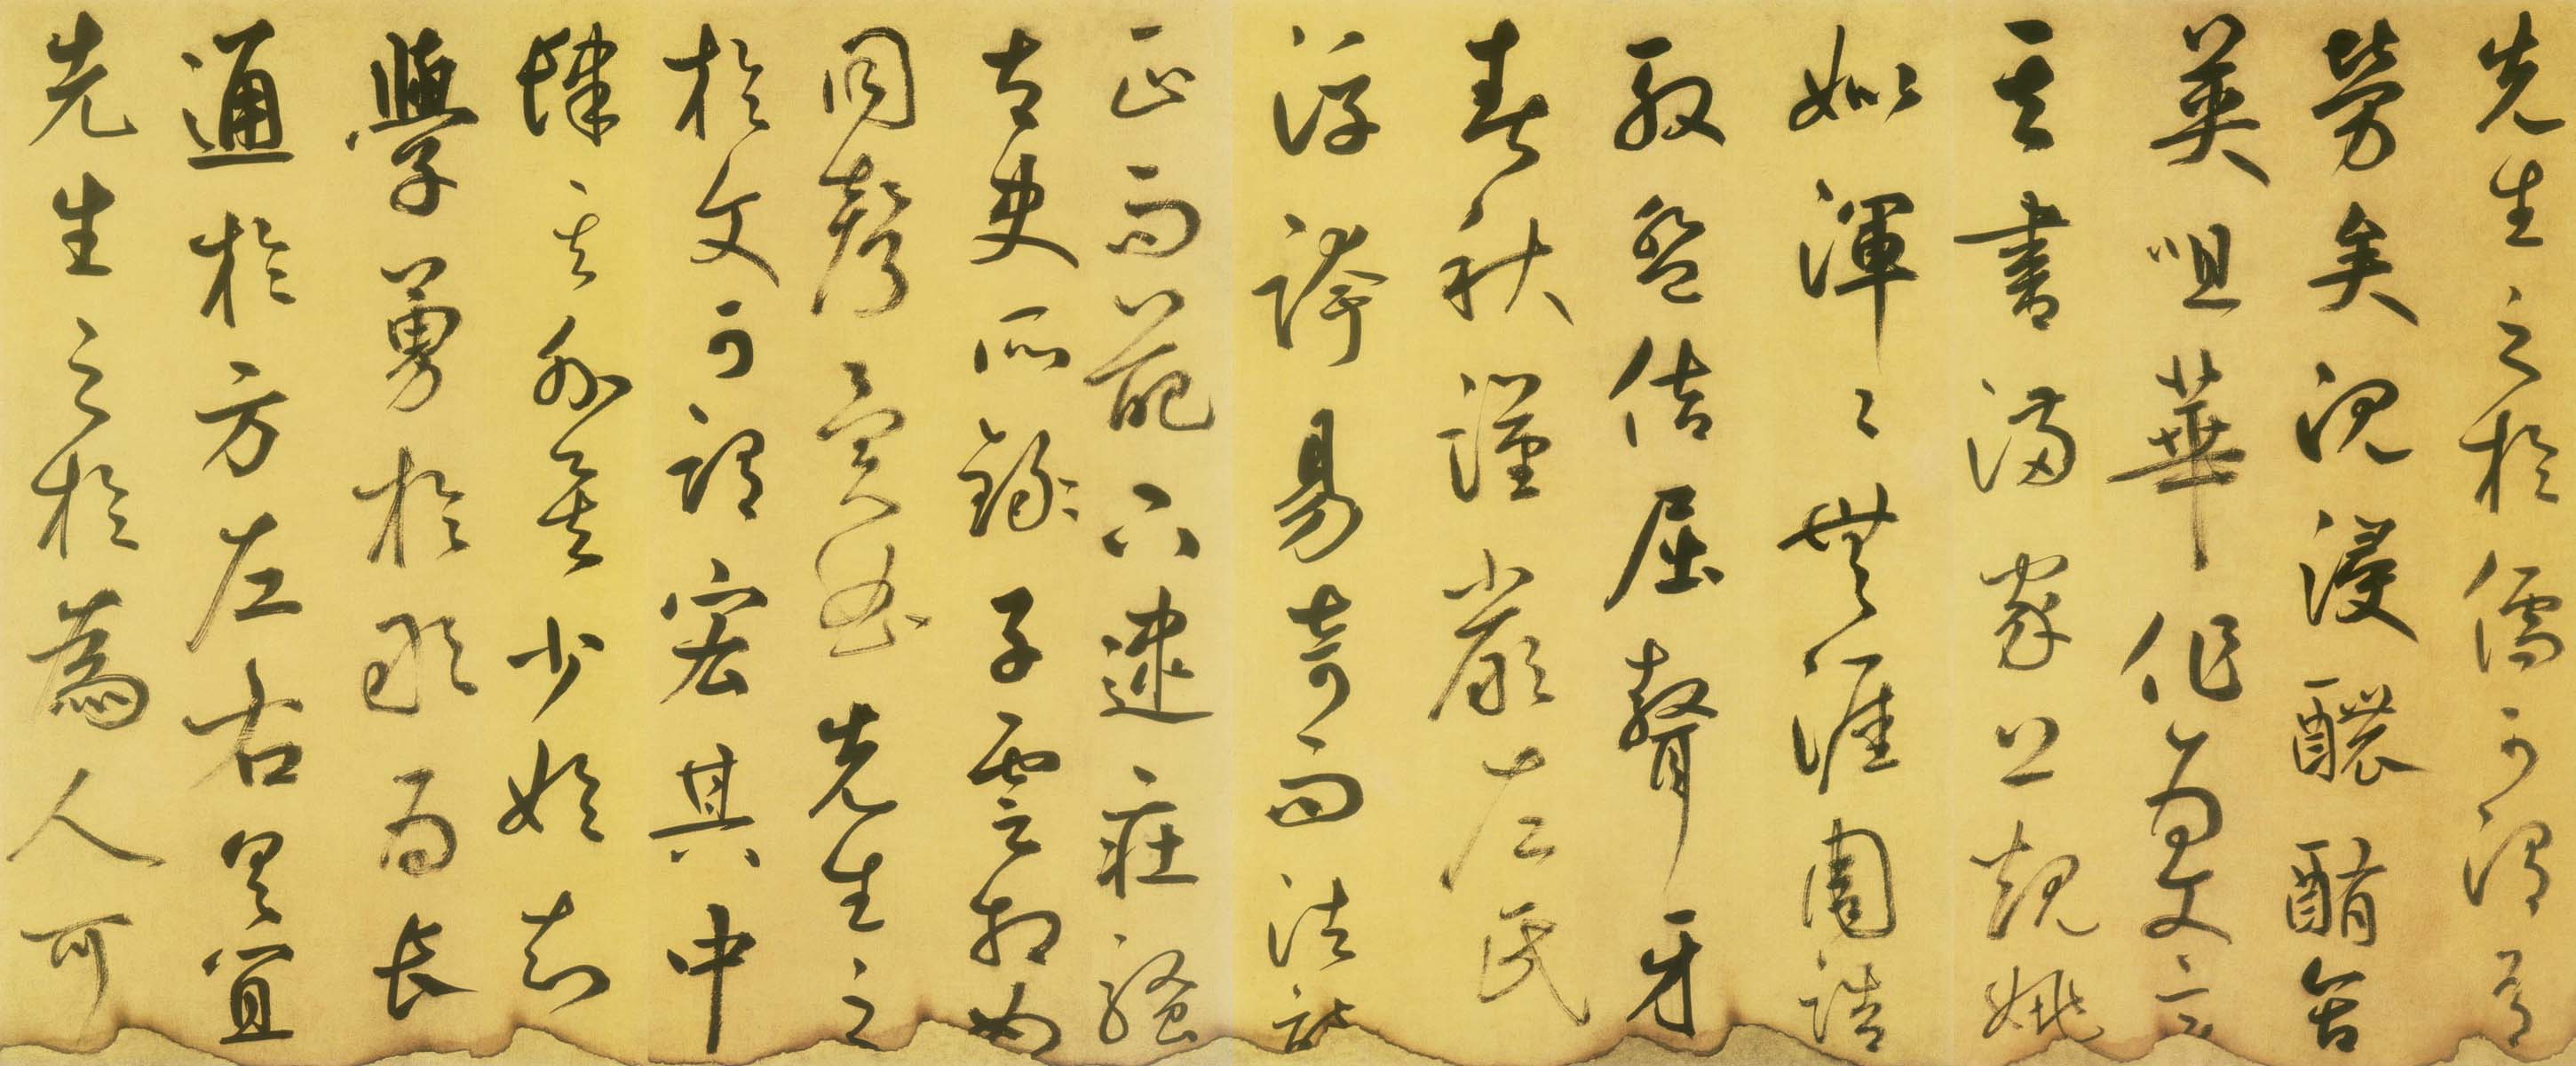 先生之於儒可謂有
勞矣沉浸醲郁含
英咀華作為文章
其書滿家上規姚
姒渾渾無涯周誥
殷盤佶屈聱牙
春秋謹嚴左氏
浮誇易奇而法詩
正而葩下逮莊騷
古史所錄子雲相如
同聲異曲先生之
於文可謂宏其中
肆其外矣少始知
學勇於敢為長
通於方左右具宜
先生之於為人可